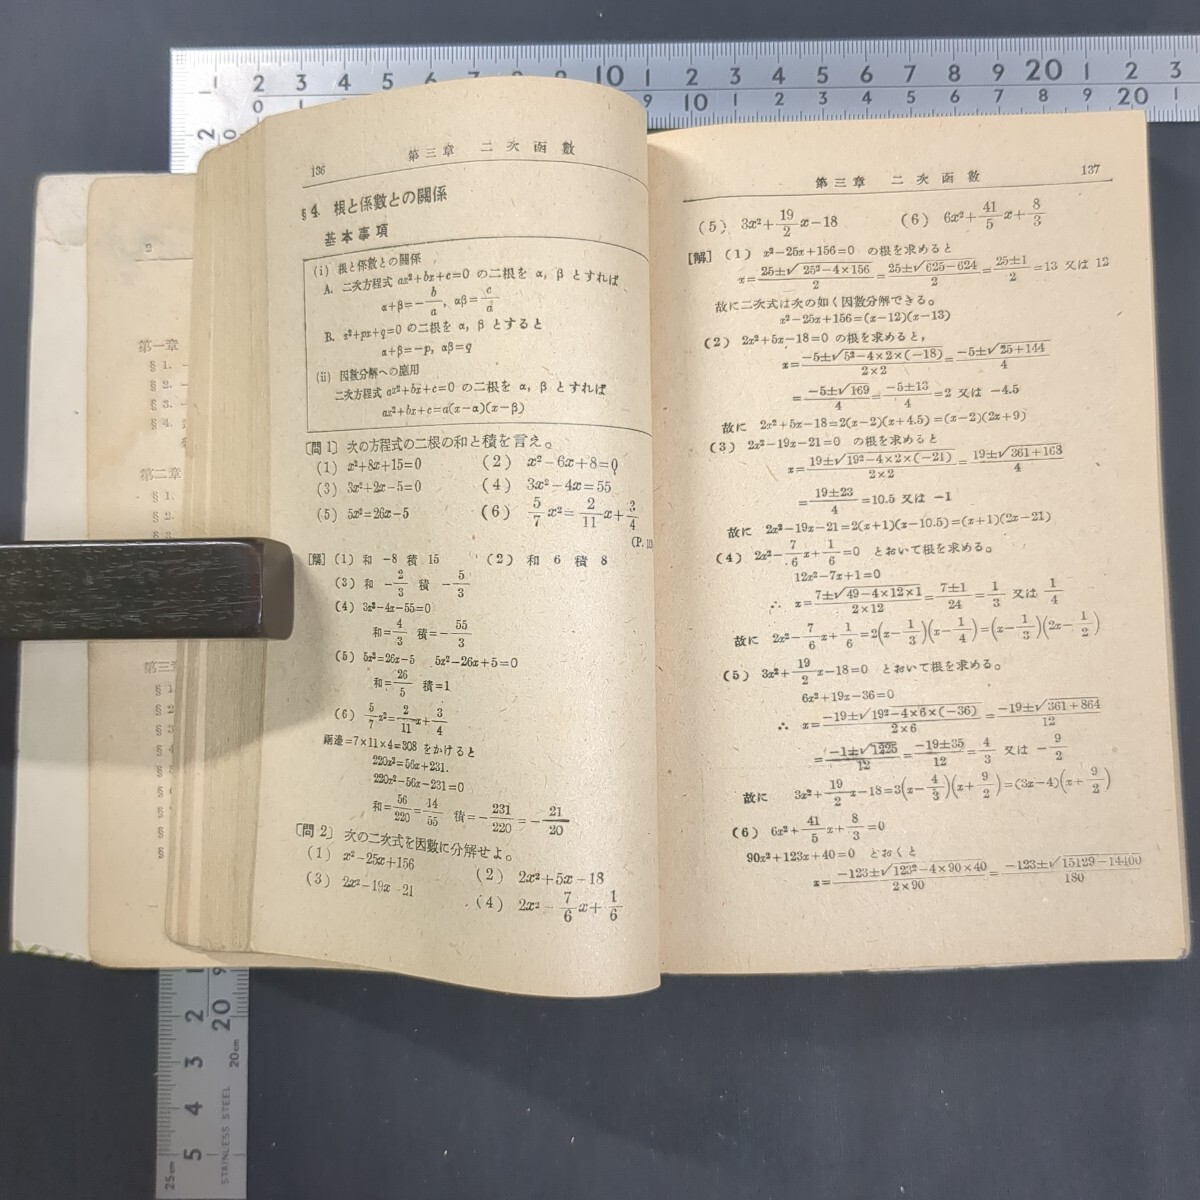 136 第三章 二次函數
§4. 根と係數との關係
基本事項
(i) 根と係數との關係
A. 二次方程式 ax²+bx+c=0 の二根を α, β とすれば
α+β=-b/a, αβ=c/a
B. x²+px+q=0 の二根を α, β とすると
α+β=-p, αβ=q
(ii) 因數分解への應用
二次方程式 ax²+bx+c=0 の二根を α, β とすれば
ax²+bx+c=a(x-α)(x-β)
[問1] 次の方程式の二根の和と積を言え。
(1) x²+8x+15=0 (2) x²-6x+8=0
(3) 3x²+2x-5=0 (4) 3x²-4x=55
(5) 5x²=26x-5 (6) 5/7 x²=2/11 x+3/4
[解] (1) 和 -8 積 15 (2) 和 6 積 8
(3) 和 -2/3 積 -5/3
(4) 3x²-4x-55=0
和=4/3 積=-55/3
(5) 5x²=26x-5 5x²-26x+5=0
和=26/5 積=1
(6) 5/7 x²=2/11 x+3/4
兩邊=7×11×4=308 をかけると
220x²=56x+231.
220x²-56x-231=0
和=56/220=14/55 積=-231/220=-21/20
[問2] 次の二次式を因數に分解せよ。
(1) x²-25x+156 (2) 2x²+5x-18
(3) 2x²-19x-21 (4) 2x²-7/6 x+1/6
第三章 二次函數 137
(5) 3x²+19/2 x-18 (6) 6x²+41/5 x+8/3
[解] (1) x²-25x+156=0 の根を求めると
x=25±√25²-4×156/2=25±√625-624/2=25±1/2=13 又は 12
故に二次式は次の如く因數分解できる。
x²-25x+156=(x-12)(x-13)
(2) 2x²+5x-18=0 の根を求めると,
x=-5±√5²-4×2×(-18)/2×2=-5±√25+144/4
=-5±√169/4=-5±13/4=2 又は -4.5
故に 2x²+5x-18=2(x-2)(x+4.5)=(x-2)(2x+9)
(3) 2x²-19x-21=0 の根を求めると
x=19±√19²-4×2×(-21)/2×2=19±√361+168/4
=19±23/4=10.5 又は -1
故に 2x²-19x-21=2(x+1)(x-10.5)=(x+1)(2x-21)
(4) 2x²-7/6 x+1/6=0 とおいて根を求める。
12x²-7x+1=0
∴ x=7±√49-4×12×1/2×12=7±1/24=1/3 又は 1/4
故に 2x²-7/6 x+1/6=2(x-1/3)(x-1/4)=(x-1/3)(2x-1/2)
(5) 3x²+19/2 x-18=0 とおいて根を求める。
6x²+19x-36=0
∴ x=-19±√19²-4×6×(-36)/2×6=-19±√361+864/12
=-1±√1225/12=-19±35/12=4/3 又は -9/2
故に 3x²+19/2 x-18=3(x-4/3)(x+9/2)=(3x-4)(x+9/2)
(6) 6x²+41/5 x+8/3=0
90x²+123x+40=0 とおくと
x=-123±√123²-4×90×40/2×90=-123±√15129-14400/180
2
第一章
§1.
§2.
§3.
§4.
第二章
§1.
§2.
第三
1 2 3 4 5 6 7 8 9 10 1 2 3 4 5 6 7 8 9 20 1 2 3
25cm
20cm
STAINLESS STEEL